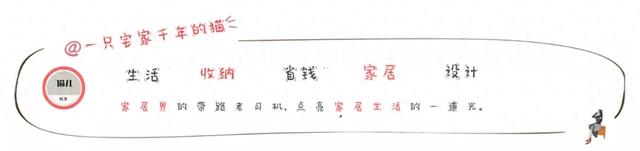 @一只宅家千年的猫
生活 收纳 省钱 家居 设计
猫儿
家居界的带路老司机,点亮家居生活的一道光。